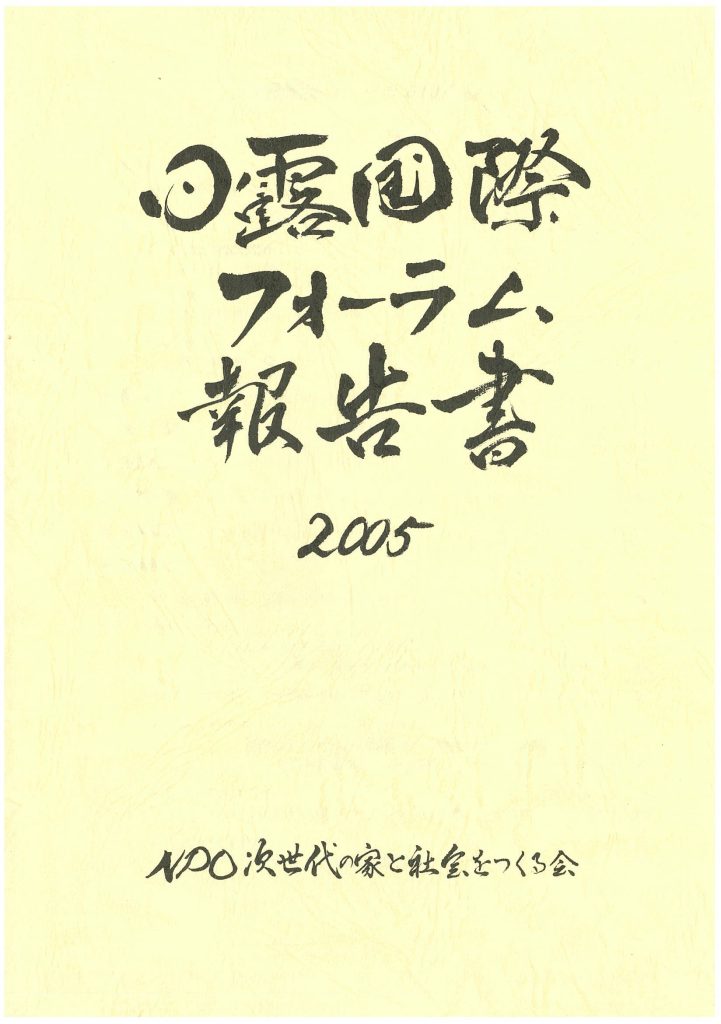 日露国際
フォーラム
報告書
2005
NPO次世代の家と社会をつくる会